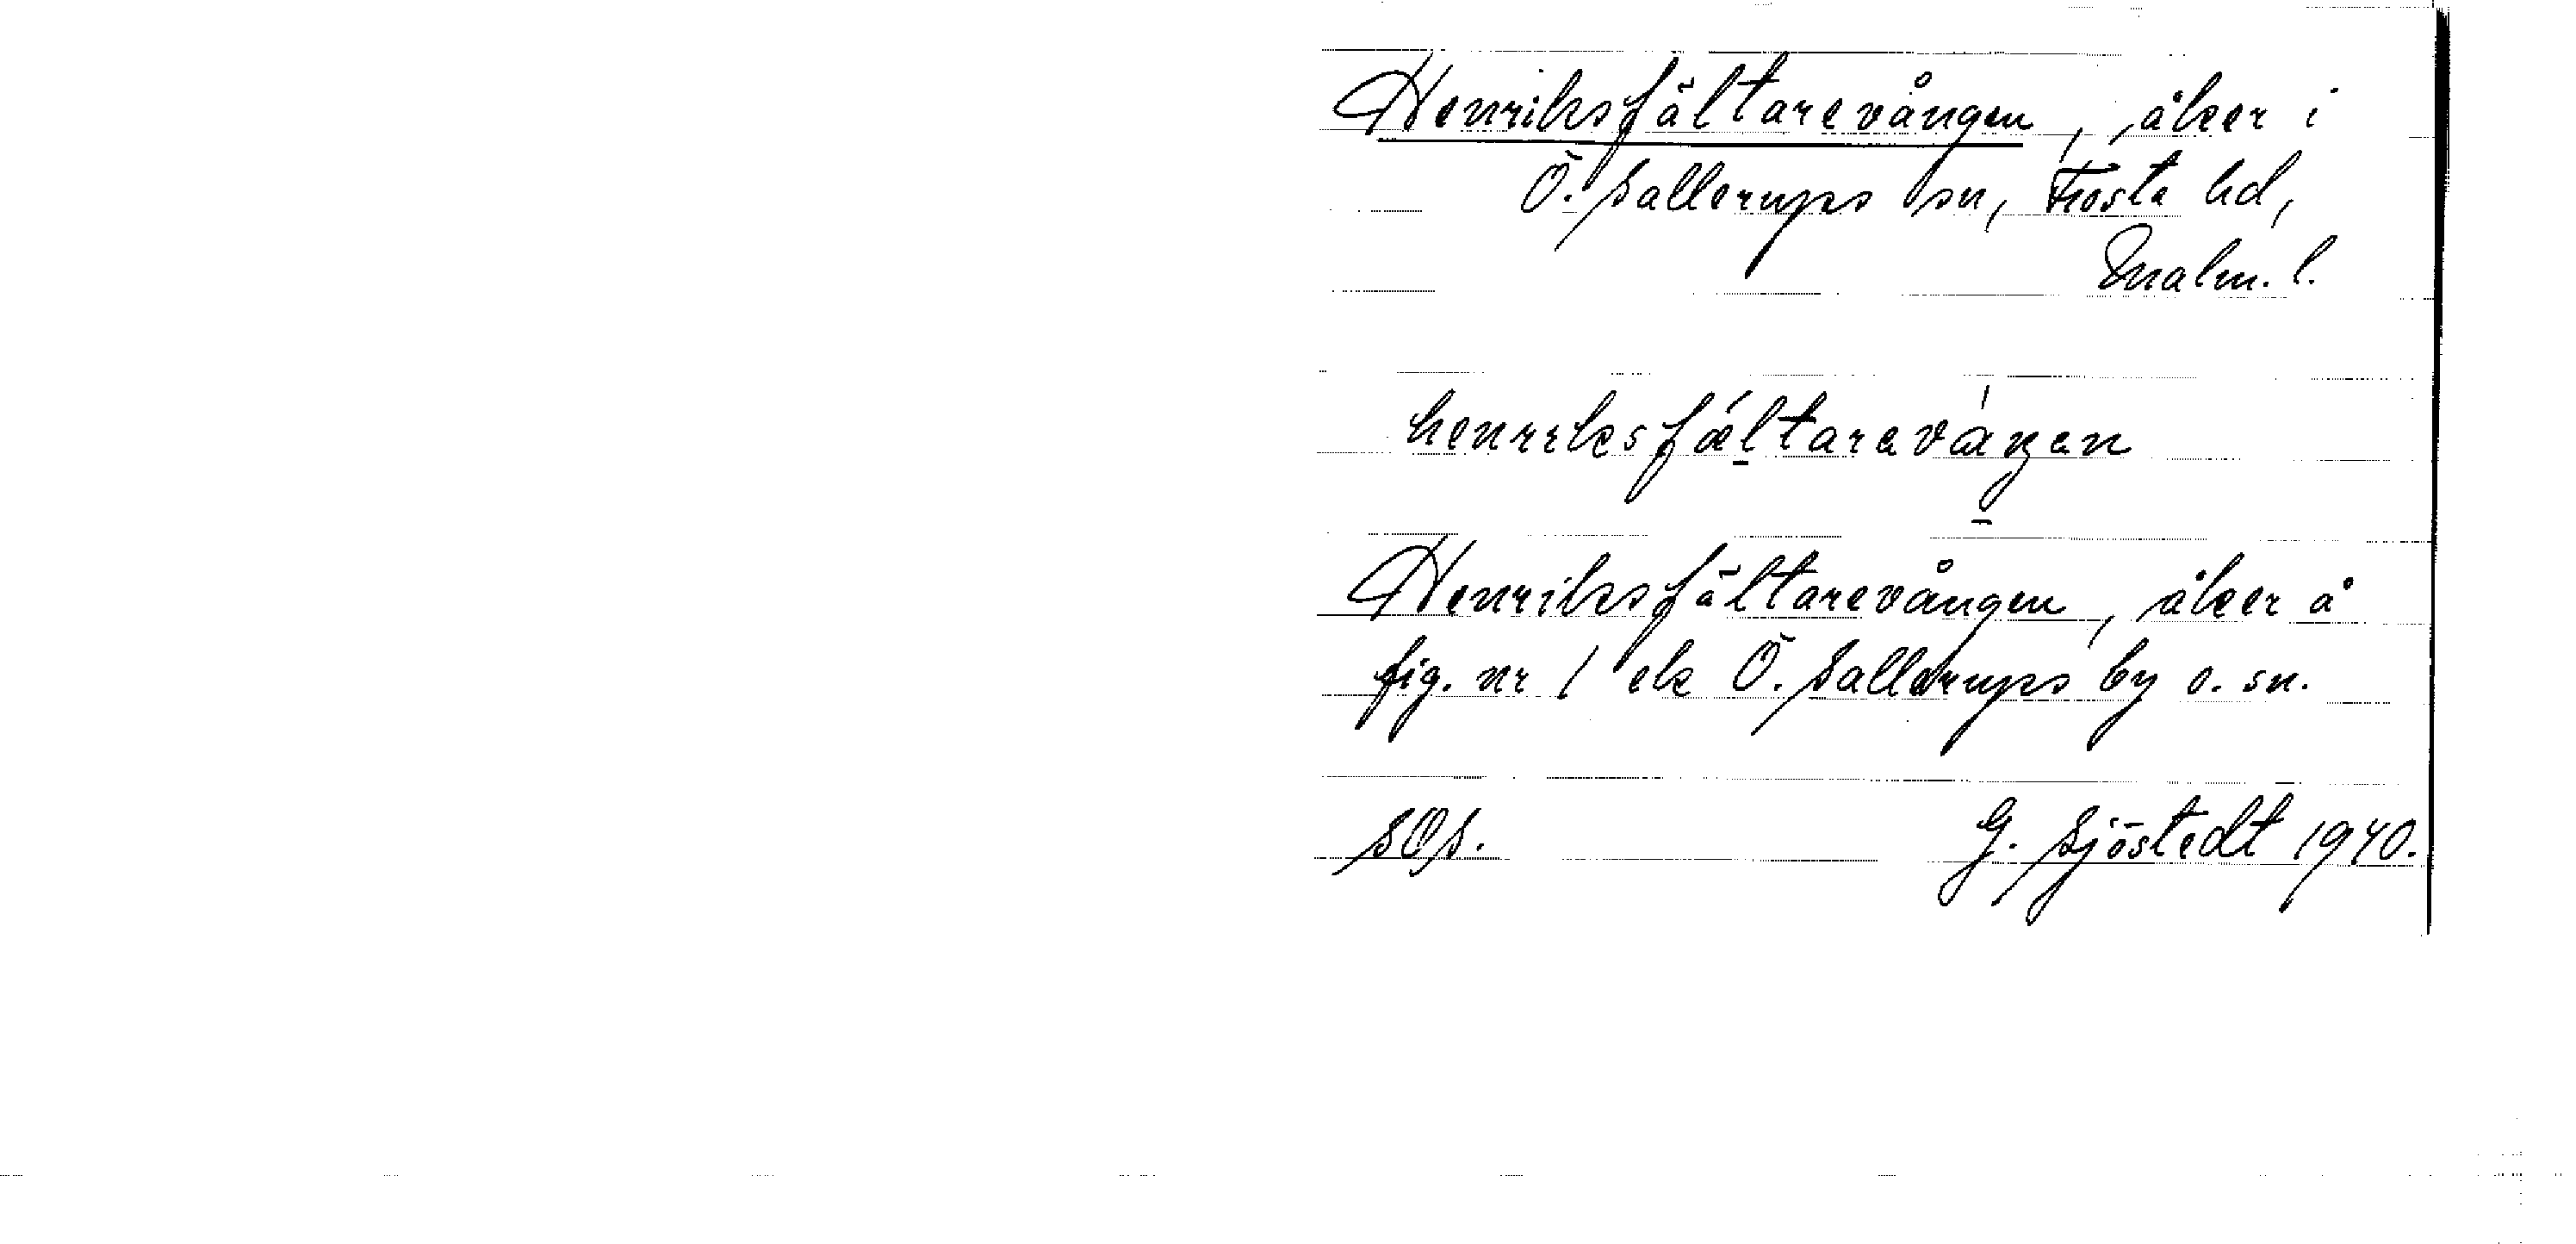 Henriksfältarevången, åker i
Ö. Sallerups sn, Frosta hd,
Malm. l.
henrɪksfæltaravaŋan
Henriksfältarevången, åker å
fig. nr 1 ek Ö. Sallerups by o. sn.
SOS. G. Sjöstedt 1940.